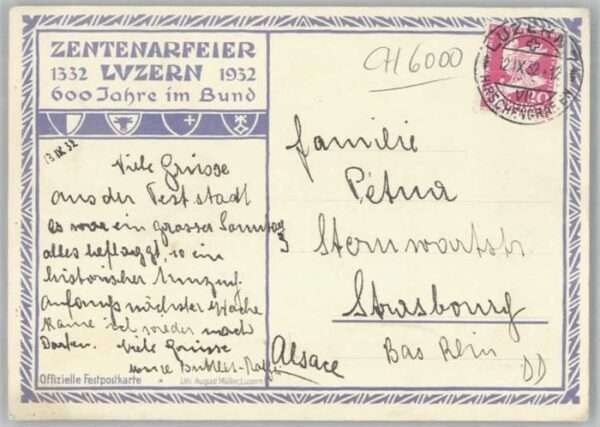 ZENTENARFEIER
1332 LVZERN 1932
600 Jahre im Bund
CH 6000
LUZERN
12.IX.32.12
VII
HIRSCHENGRABEN
20
13.IX.32
Viele Grüsse
aus der Feststadt
es war ein grosser Sonntag
alles beflaggt, so ein
historischer Umzug.
Anfangs nächster Woche
kame ich wieder nach
Viele Grüsse
Familie
Pétua
Sternwartstr
3
Strasbourg
Alsace
Bas Rhin
DD
Offizielle Festpostkarte
Lith. August Müller, Luzern